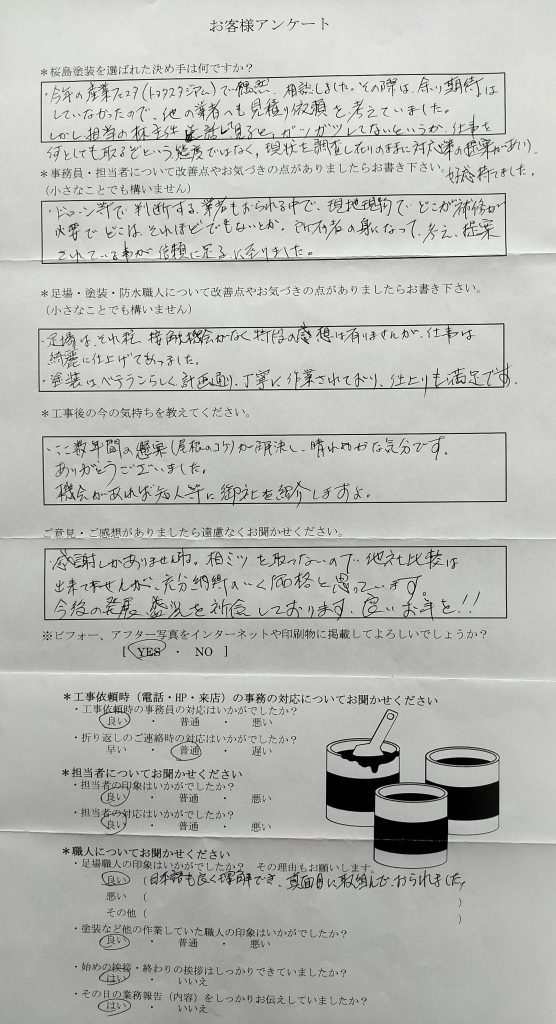 お客様アンケート
＊桜島塗装を選ばれた決め手は何ですか？
・今年の産業フェスタ(トヨタスタジアム)で偶然、相談しました。その際は、余り期待は
していなかったので、他の業者へも見積り依頼を考えていました。
しかし担当の林主任と話ど見ると、ガツガツしてないというか、仕事を
何としても取るぞという態度ではなく、現状を調査し在りのままに対応策の提案があり、
好感持てました。
＊事務員・担当者について改善点やお気づきの点がありましたらお書き下さい。
（小さなことでも構いません）
・ドローン等で判断する業者もおられる中で、現地現物でどこが補修が
必要でどこは、それほどでもないとか、所有者の身になって、考え、提案
されている事が信頼に足るに至りました。
＊足場・塗装・防水職人について改善点やお気づきの点がありましたらお書き下さい。
（小さなことでも構いません）
・足場は、それ程、接触機会がなく特段の感想は有りませんが、仕事は
綺麗に仕上げてあっました。
・塗装は、ベテランらしく、計画通り、丁寧に作業されており、仕上りも満足です。
＊工事後の今の気持ちを教えてください。
・ここ数年間の懸案(屋根のコケ)が解決し、晴れやかな気分です。
ありがとうございました。
機会があれば知人等に御社を紹介しますよ。
ご意見・ご感想がありましたら遠慮なくお聞かせください。
感謝しかありませんね。相ミツを取ってないので他社比較は
出来てませんが、充分納得のいく価格と思っています。
今後の発展、盛況を祈念しております。良いお年を!!
※ビフォー、アフター写真をインターネットや印刷物に掲載してよろしいでしょうか？
[ YES ・ NO ]
＊工事依頼時（電話・HP・来店）の事務の対応についてお聞かせください
・工事依頼時の事務員の対応はいかがでしたか？
良い ・ 普通 ・ 悪い
・折り返しのご連絡時の対応はいかがでしたか？
早い ・ 普通 ・ 遅い
＊担当者についてお聞かせください
・担当者の印象はいかがでしたか？
良い ・ 普通 ・ 悪い
・担当者の対応はいかがでしたか？
良い ・ 普通 ・ 悪い
＊職人についてお聞かせください
・足場職人の印象はいかがでしたか？ その理由もお願いします。
良い（日本語も良く理解でき、真面目に取組んでおられました）
悪い（ ）
その他（ ）
・塗装など他の作業していた職人の印象はいかがでしたか？
良い ・ 普通 ・ 悪い
・始めの挨拶・終わりの挨拶はしっかりできていましたか？
はい ・ いいえ
・その日の業務報告（内容）をしっかりお伝えしていましたか？
はい ・ いいえ